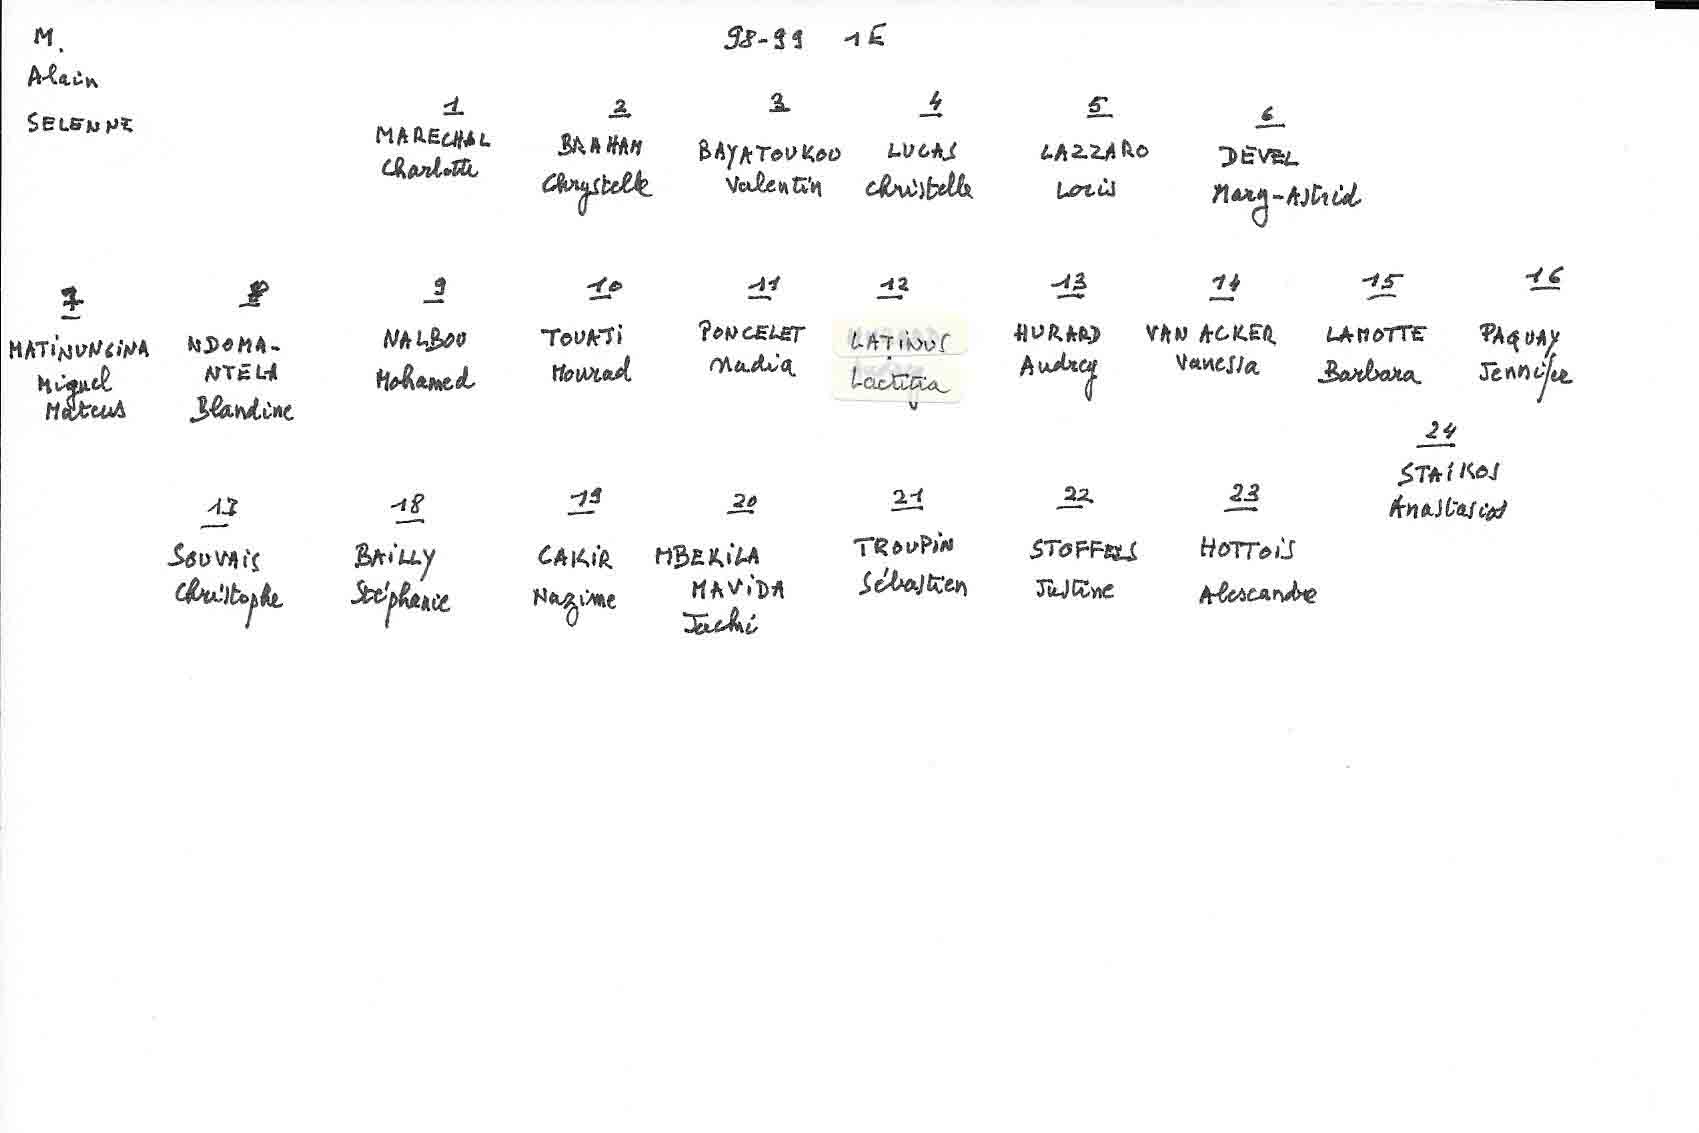 M.
98-99 1E
Alain
SELENNE
1 2 3 4 5 6
MARECHAL BRAHAM BAYATOUKOU LUCAS LAZZARO DEVEL
Charlotte Chrystelle Valentin Christelle Loris Mary-Astrid
7 8 9 10 11 12 13 14 15 16
MATINUNGINA NDOMA- NALBOU TOUATI PONCELET LATINUS HURARD VAN ACKER LAMOTTE PAQUAY
Miguel NTELA Mohamed Mourad Nadia Laetitia Audrey Vanessa Barbara Jennifer
Mateus Blandine
24
STAIKOS
Anastasios
17 18 19 20 21 22 23
SOUVAIS BAILLY CAKIR MBEKILA TROUPIN STOFFELS HOTTOIS
Christophe Stéphanie Nazime MAVIDA Sébastien Justine Alescandre